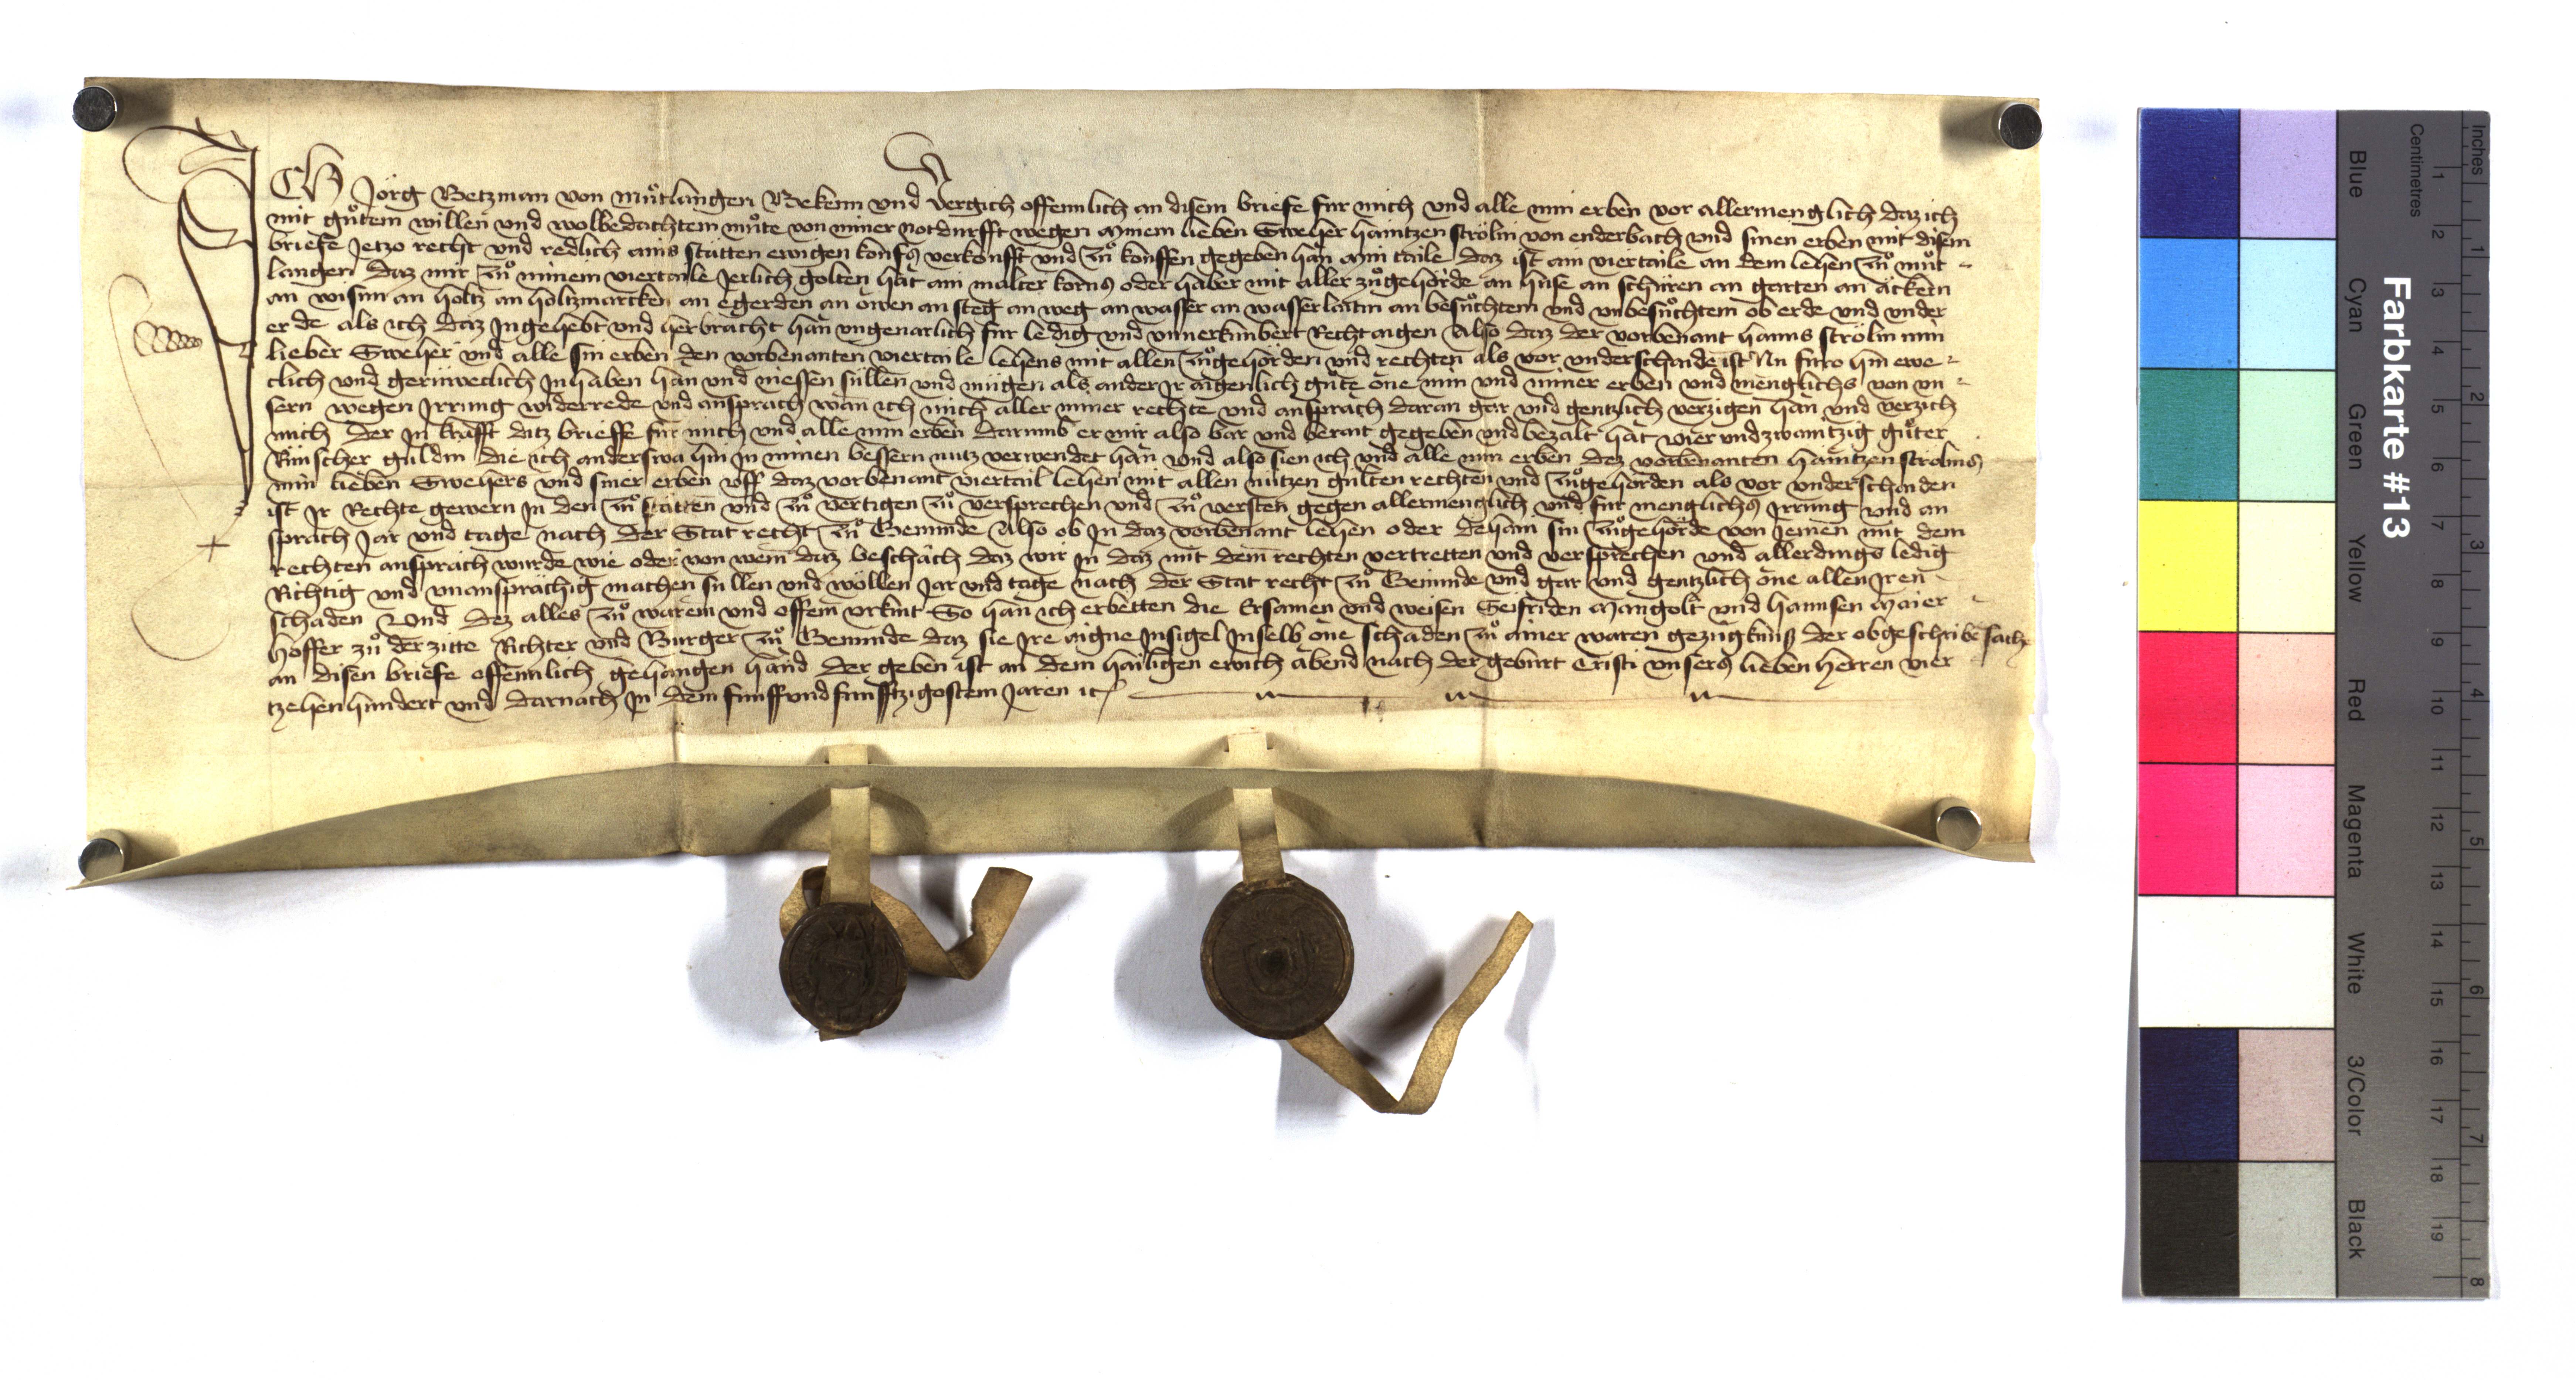 ICH Jörg Betzman von Můtlangen Bekenn vnd vergich offennlich an disem briefe für mich vnd alle min erben vor allermenglich daz ich
mit gůtem willen vnd wolbedachtem můte von miner notdurfft wegen minem lieben Sweher Haintzen strölin von enderbach vnd sinen erben mit disem
briefe Jetzo recht vnd redlich ains stätten ewigen koufs verkoufft vnd zů kouffen gegeben han min taile daz ist ain viertaile an dem lehen zů můt-
langen daz mir zů minem viertaile Jerlich golten hat ain malter korns oder haber mit aller zůgehörde an huse an schüren an garten an äckern
an wisin an holtz an holtzmarcken an egerden an öwen an steg an weg an wasser an wasserlaitin an besůchtem vnd vnbesůchtem ob erde vnd vnder
erde als ich daz Jngehebt vnd herbracht han vngenarlich für ledig vnd vnuerkümbert Recht aigen Also daz der vorbenant hanns strölin min
lieber Sweher vnd alle sin erben den vorbenanten viertaile lehens mit allen zůgehörden vnd rechten als vor vnderschaide ist Nu füro hin ewe-
clich vnd gerüweclich Jnhaben han vnd niessen süllen vnd mügen als ander Jr aigenlich gůte one min vnd miner erben vnd menglichs von vn-
sern wegen Jrrung widerrede vnd ansprach wan ich mich aller miner rechte vnd ansprach daran gar vnd gentzlich verzigen han vnd verzich
mich der Jn krafft ditz brieffs für mich vnd alle min erben darumb er mir also bar vnd berait gegeben vnd bezalt hat vier vnd zwaintzig gůter
Rinscher guldin die ich anderswa hin Jn minen bessern nutz verwendet han vnd also sien ich vnd alle min erben dez vorbenanten haintzen strölins
mins lieben Swehers vnd siner erben vff daz vorbenant viertail lehen mit allen nützen gülten rechten vnd zůgehörden als vor vnderschaiden
ist Jr Rechte gewern Jn den zů stätten vnd zů vertigen zů versprechen vnd zů versten gegen allermenglich vnd für menglichs Jrrung vnd an
sprach Jar vnd tage nach der Stat recht zů Gemünde Also ob Jn daz vorbenant lehen oder dehain sin zůgehörde von Jemen mit dem
rechten ansprach wurde wie oder von wem daz beschäch daz wir Jn daz mit dem rechten vertretten vnd versprechen vnd allerdings ledig
Richtig vnd vnansprächig machen süllen vnd wöllen Jar vnd tage nach der Stat recht zů Gemünde vnd gar vnd gentzlich one allen Jren
schaden Vnd dez alles zů warem vnd offem vrkünt So han ich erbetten die Ersamen vnd weisen Seifriden Mangolt vnd hannsen Maier
höffer zů der zitte Richter vnd Burger zů Gemünde daz sie Jre aigne Jnsigel Jnselb one schaden zů ainer waren gezügknüß der obgeschribē sach
an disen briefe offennlich gehangen hand der geben ist an dem hailigen ewich abend nach der geburt Cristi vnsers lieben herren vier
tzehenhundert vnd darnach Jn dem fünffvndfünfftzigostem Jaren ꝛc
Farbkarte #13
Blue
Cyan
Green
Yellow
Red
Magenta
White
3/Color
Black
Centimetres
1 2 3 4 5 6 7 8 9 10 11 12 13 14 15 16 17 18 19
Inches
1 2 3 4 5 6 7 8